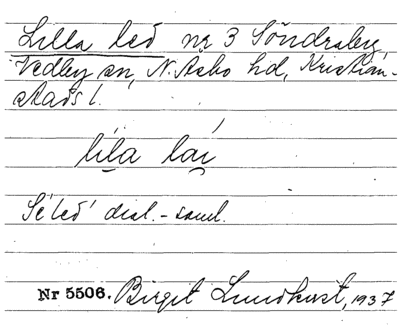 Lilla led nr 3 Söndraby,
Vedby sn, N. Åsbo hd, Kristian-
stads l.
lila lai
Se 'led' dial.-saml.
Nr 5506. Birgit Lundkvist, 1937